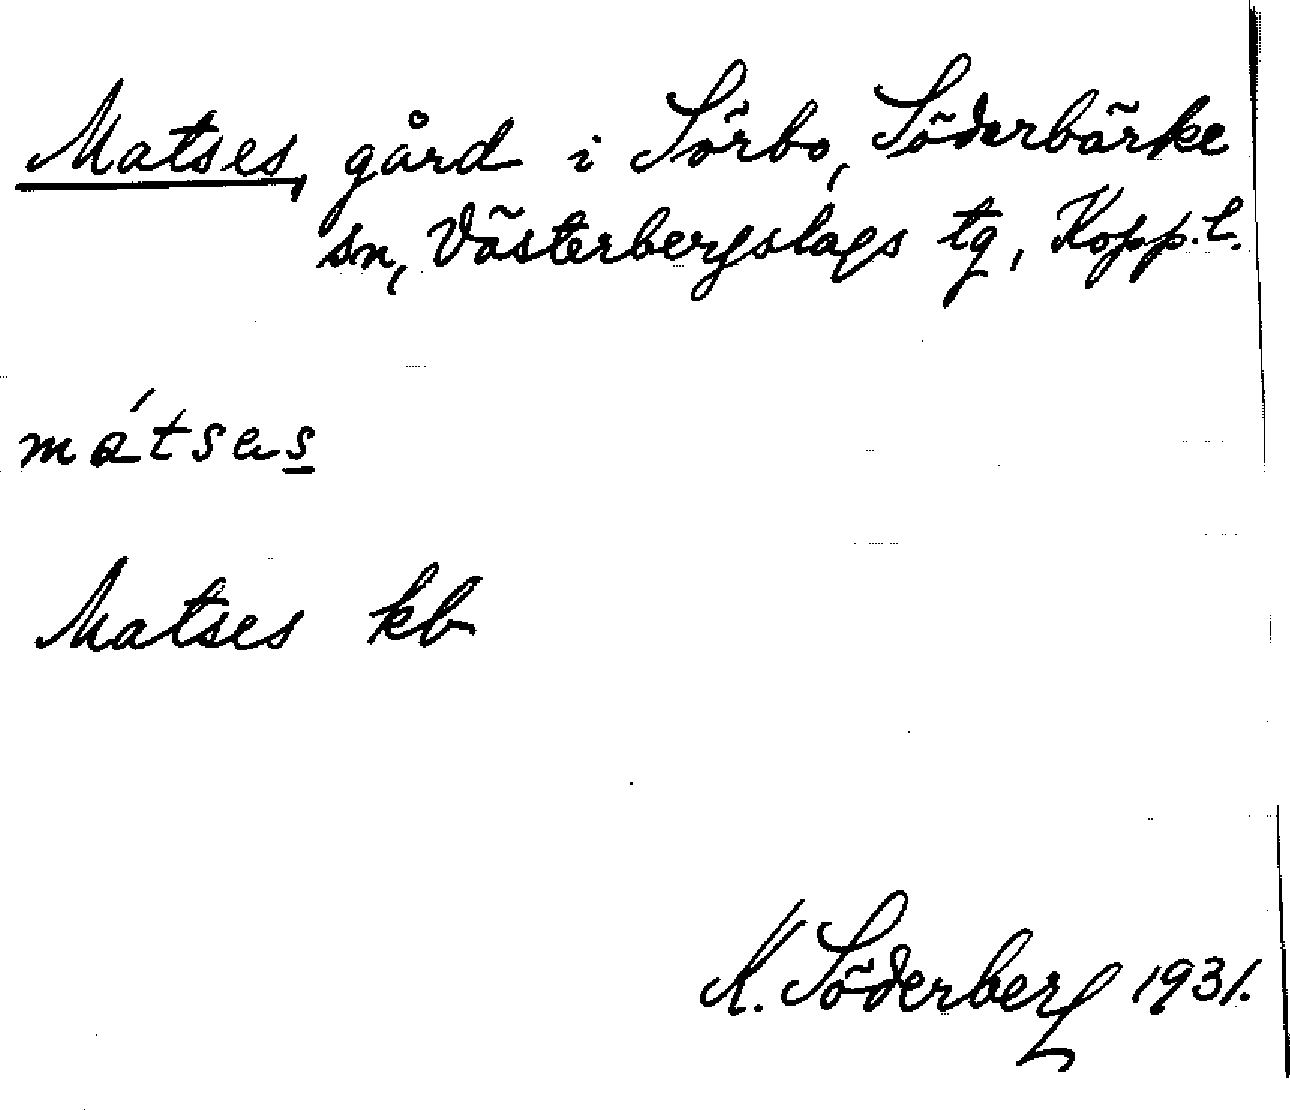 Matses, gård i Sörbo, Söderbärke
sn, Västerbergslags tg, Kopp.l.
mátses
Matses kb
K. Söderberg 1931.